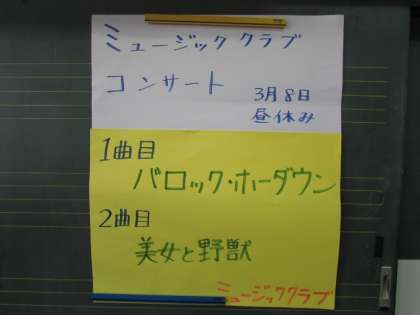 ミュージッククラブ
コンサート
3月8日
昼休み
1曲目
バロック・ホーダウン
2曲目
美女と野獣
ミュージッククラブ